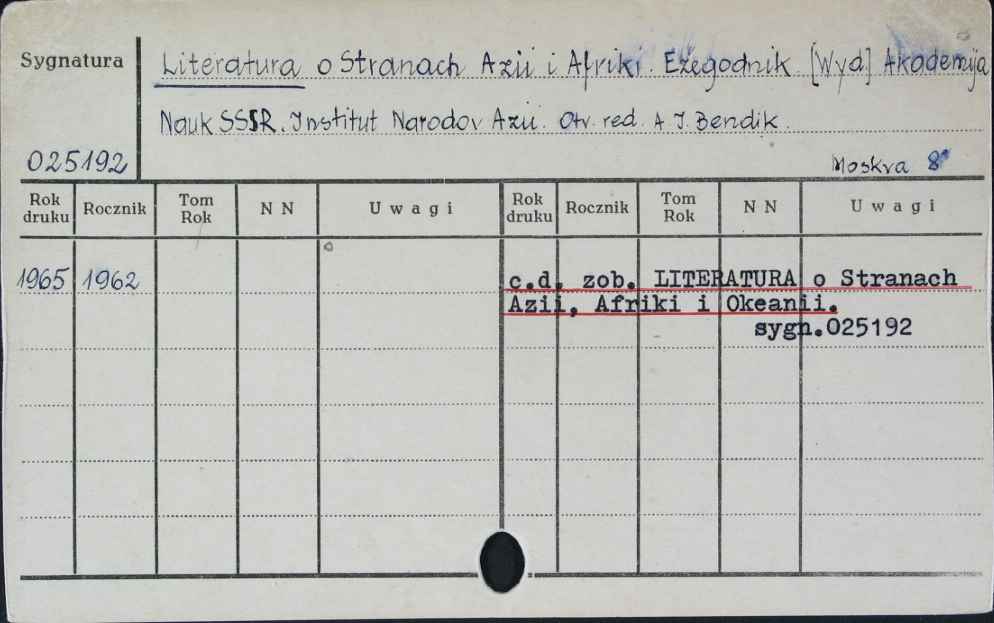 Sygnatura
Literatura o Stranach Azii i Afriki. Eżegodnik [Wyd] Akademija
Nauk SSSR. Institut Narodov Azii. Otv. red. A I. Bendik.
025192
Moskva 8°
Rok druku Rocznik Tom Rok N N Uwagi Rok druku Rocznik Tom Rok N N Uwagi
1965 1962 c.d. zob. LITERATURA o Stranach
Azii, Afriki i Okeanii.
sygn.025192